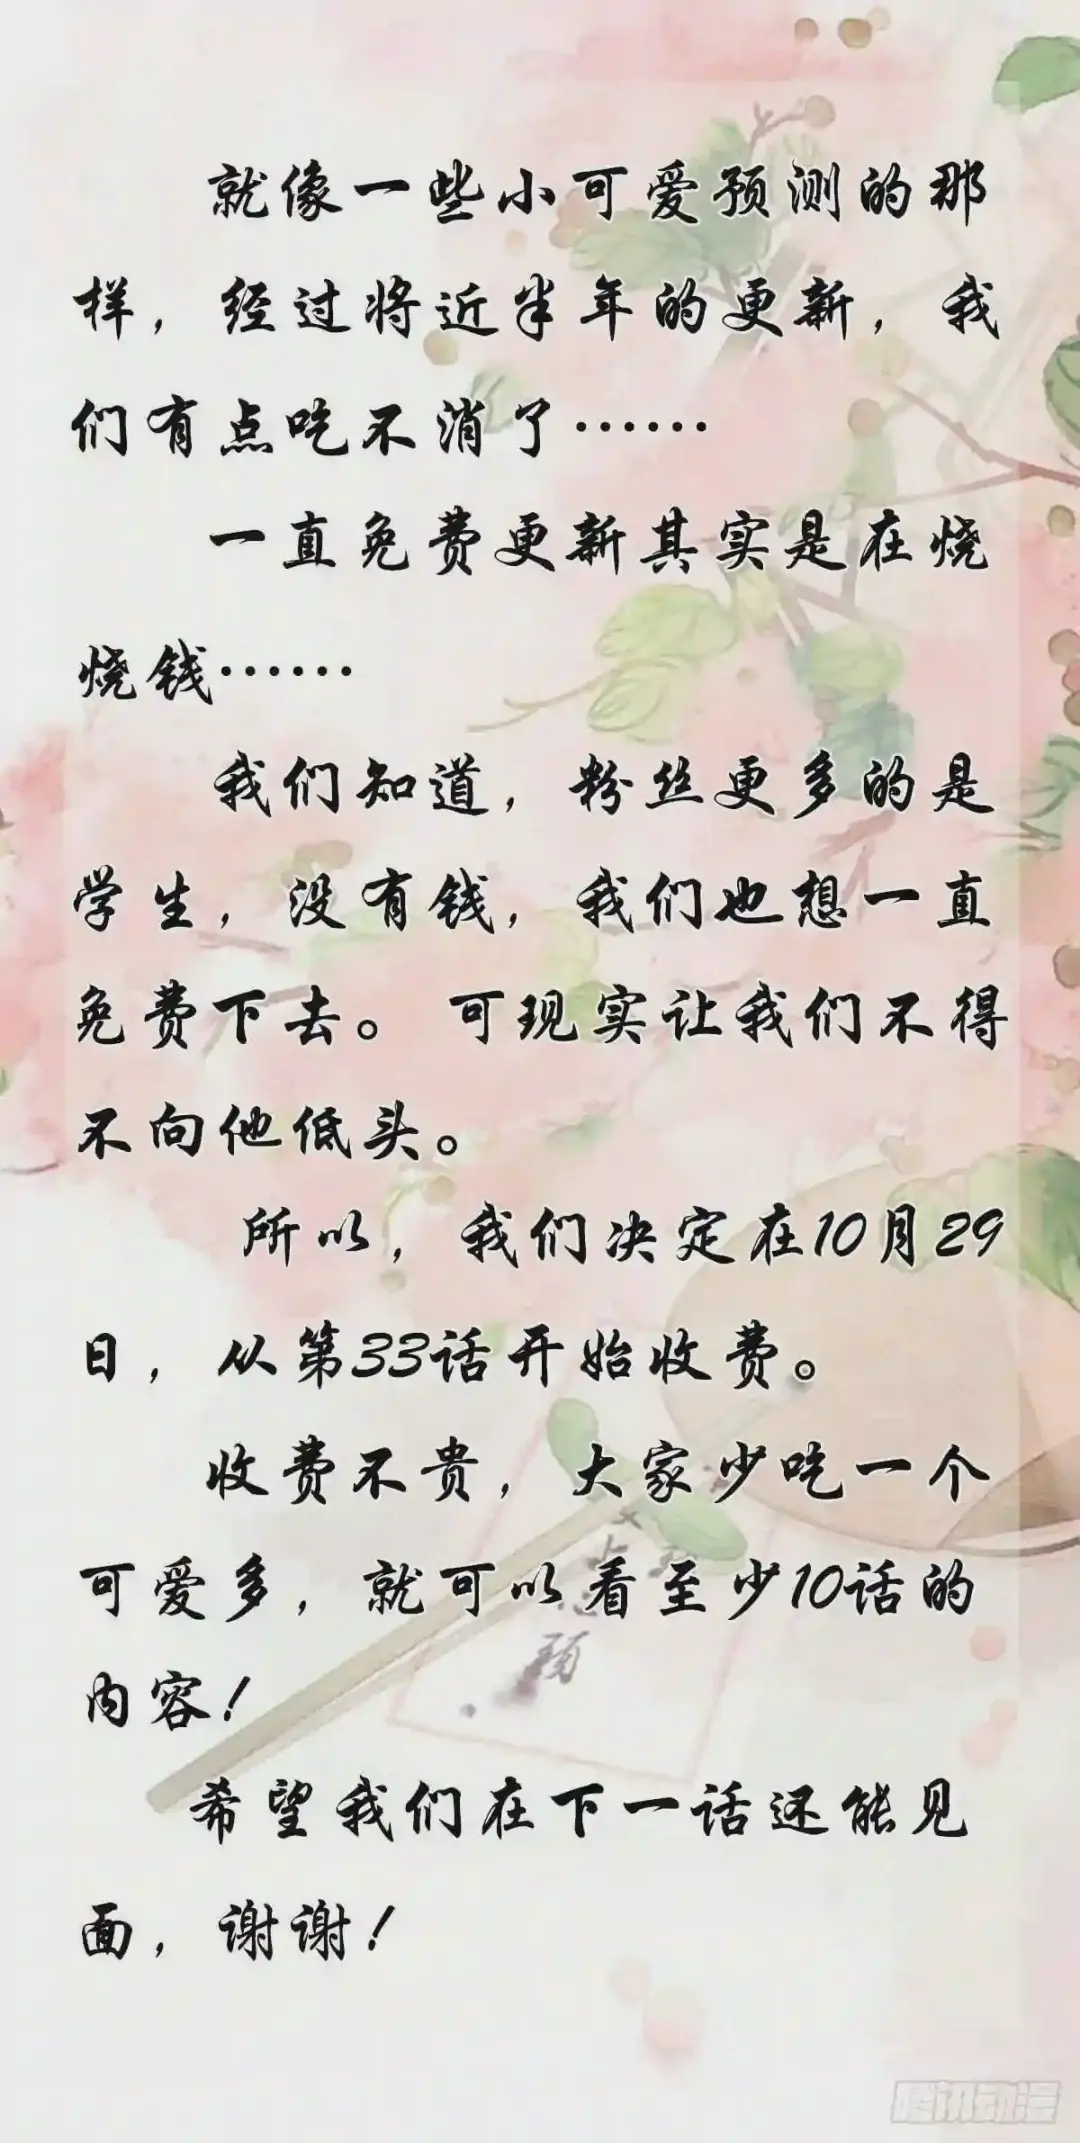 就像一些小可爱预测的那
样，经过将近半年的更新，我
们有点吃不消了……
一直免费更新其实是在烧
烧钱……
我们知道，粉丝更多的是
学生，没有钱，我们也想一直
免费下去。可现实让我们不得
不向他低头。
所以，我们决定在10月29
日，从第33话开始收费。
收费不贵，大家少吃一个
可爱多，就可以看至少10话的
内容！
希望我们在下一话还能见
面，谢谢！
腾讯动漫